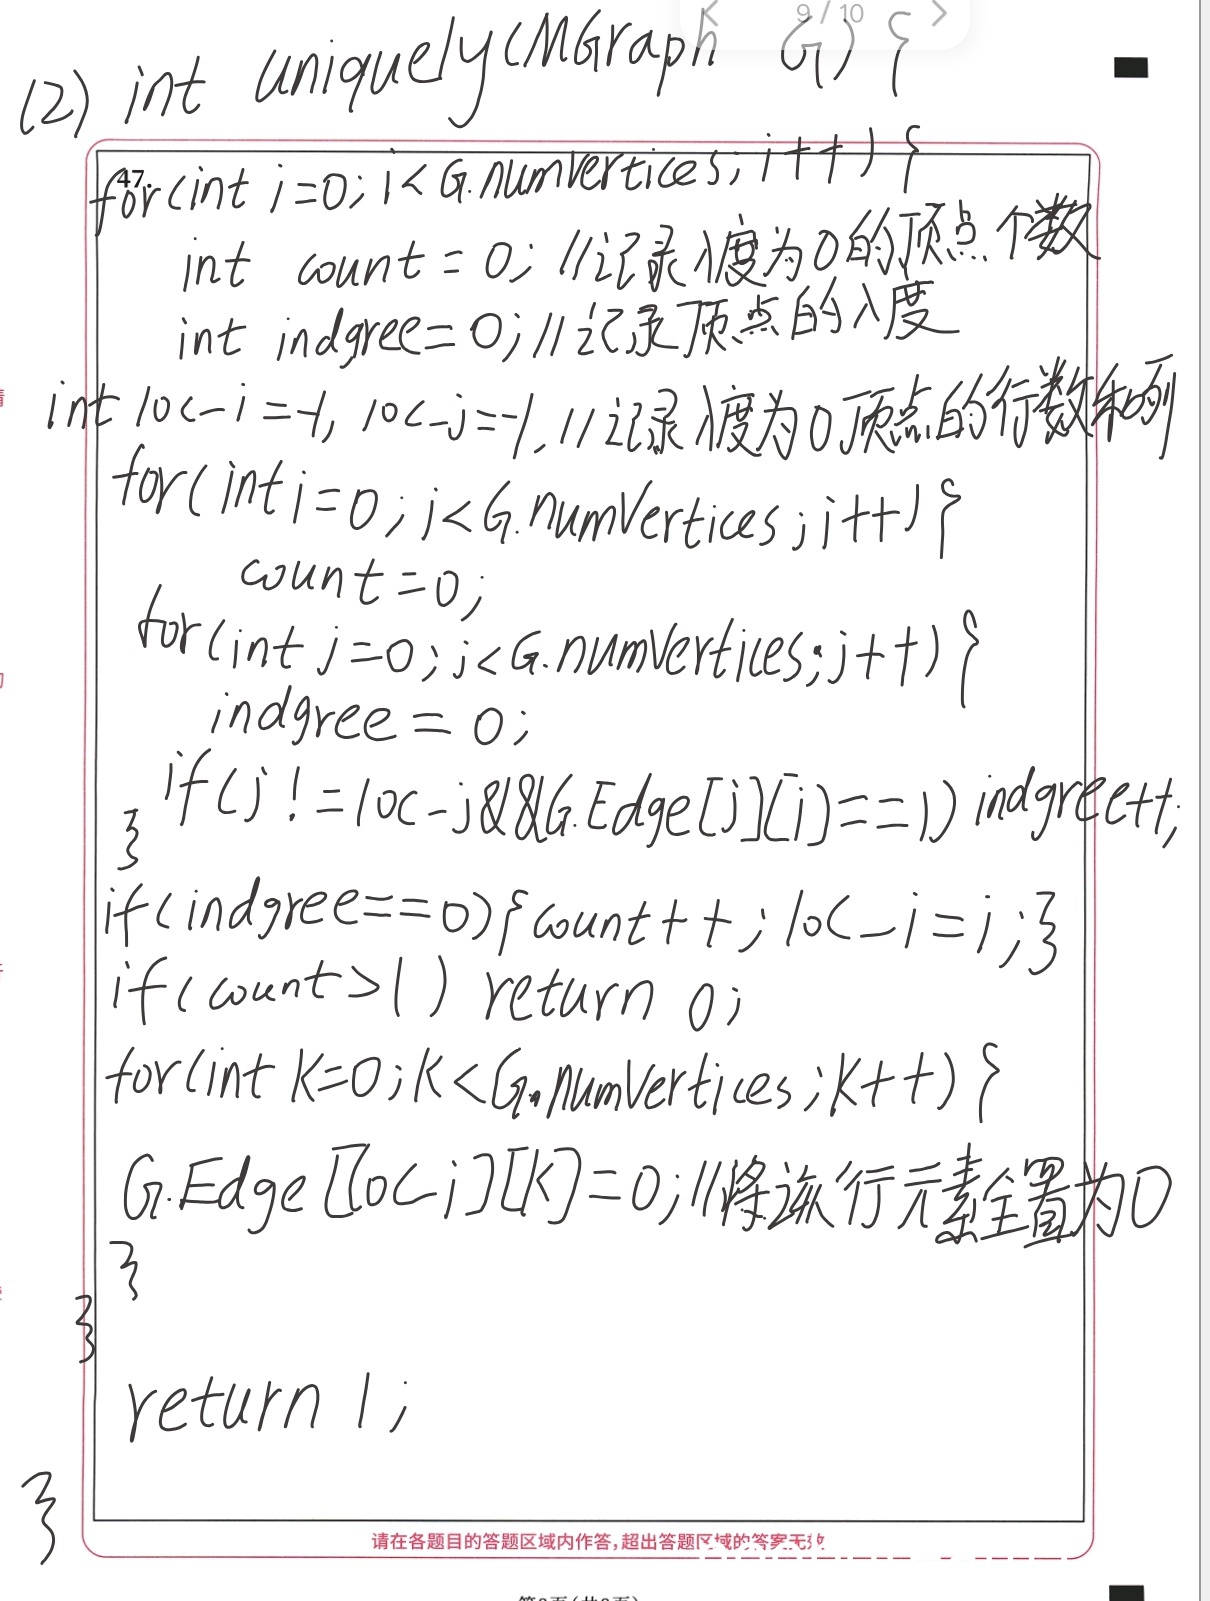 9 / 10
(2) int uniquely(MGraph G) {
47.
for(int i=0; i<G.numVertices; i++) {
int count = 0; //记录入度为0的顶点个数
int indgree= 0; //记录顶点的入度
int loc-i=-1, loc-j=-1, //记录入度为0顶点的行数和列
for(int i=0; i<G.numVertices; i++) {
count=0;
for(int j=0; j<G.numVertices; j++) {
indgree = 0;
if(j!=loc-j&&G.Edge[j][i]==1) indgree++;
}
if(indgree==0){count++; loc-i=i;}
if(count>1) return 0;
for(int k=0; k<G.numVertices; k++) {
G.Edge[loc-i][k]=0; //将该行元素全置为0
}
}
return 1;
}
请在各题目的答题区域内作答,超出答题区域的答案无效